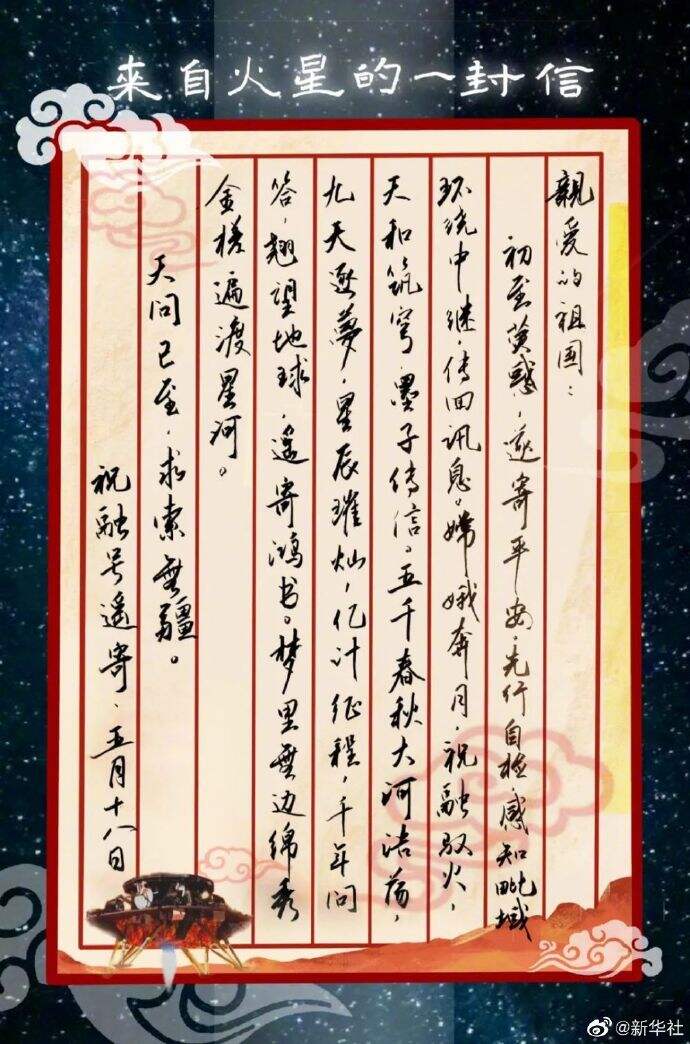 來自火星的一封信
親爱的祖国：
初至荧惑，遥寄平安。先行自检，感知毗域
环绕中继，传回讯息。嫦娥奔月，祝融驭火，
天和筑穹，墨子传信。五千春秋大河浩荡，
九天逐夢，星辰璀灿，亿计征程，千年问
答，翘望地球，遥寄鸿书。梦里無边绵秀
金槎遍渡星河。
天问已至，求索無疆。
祝融号遥寄，五月十八日
@新华社